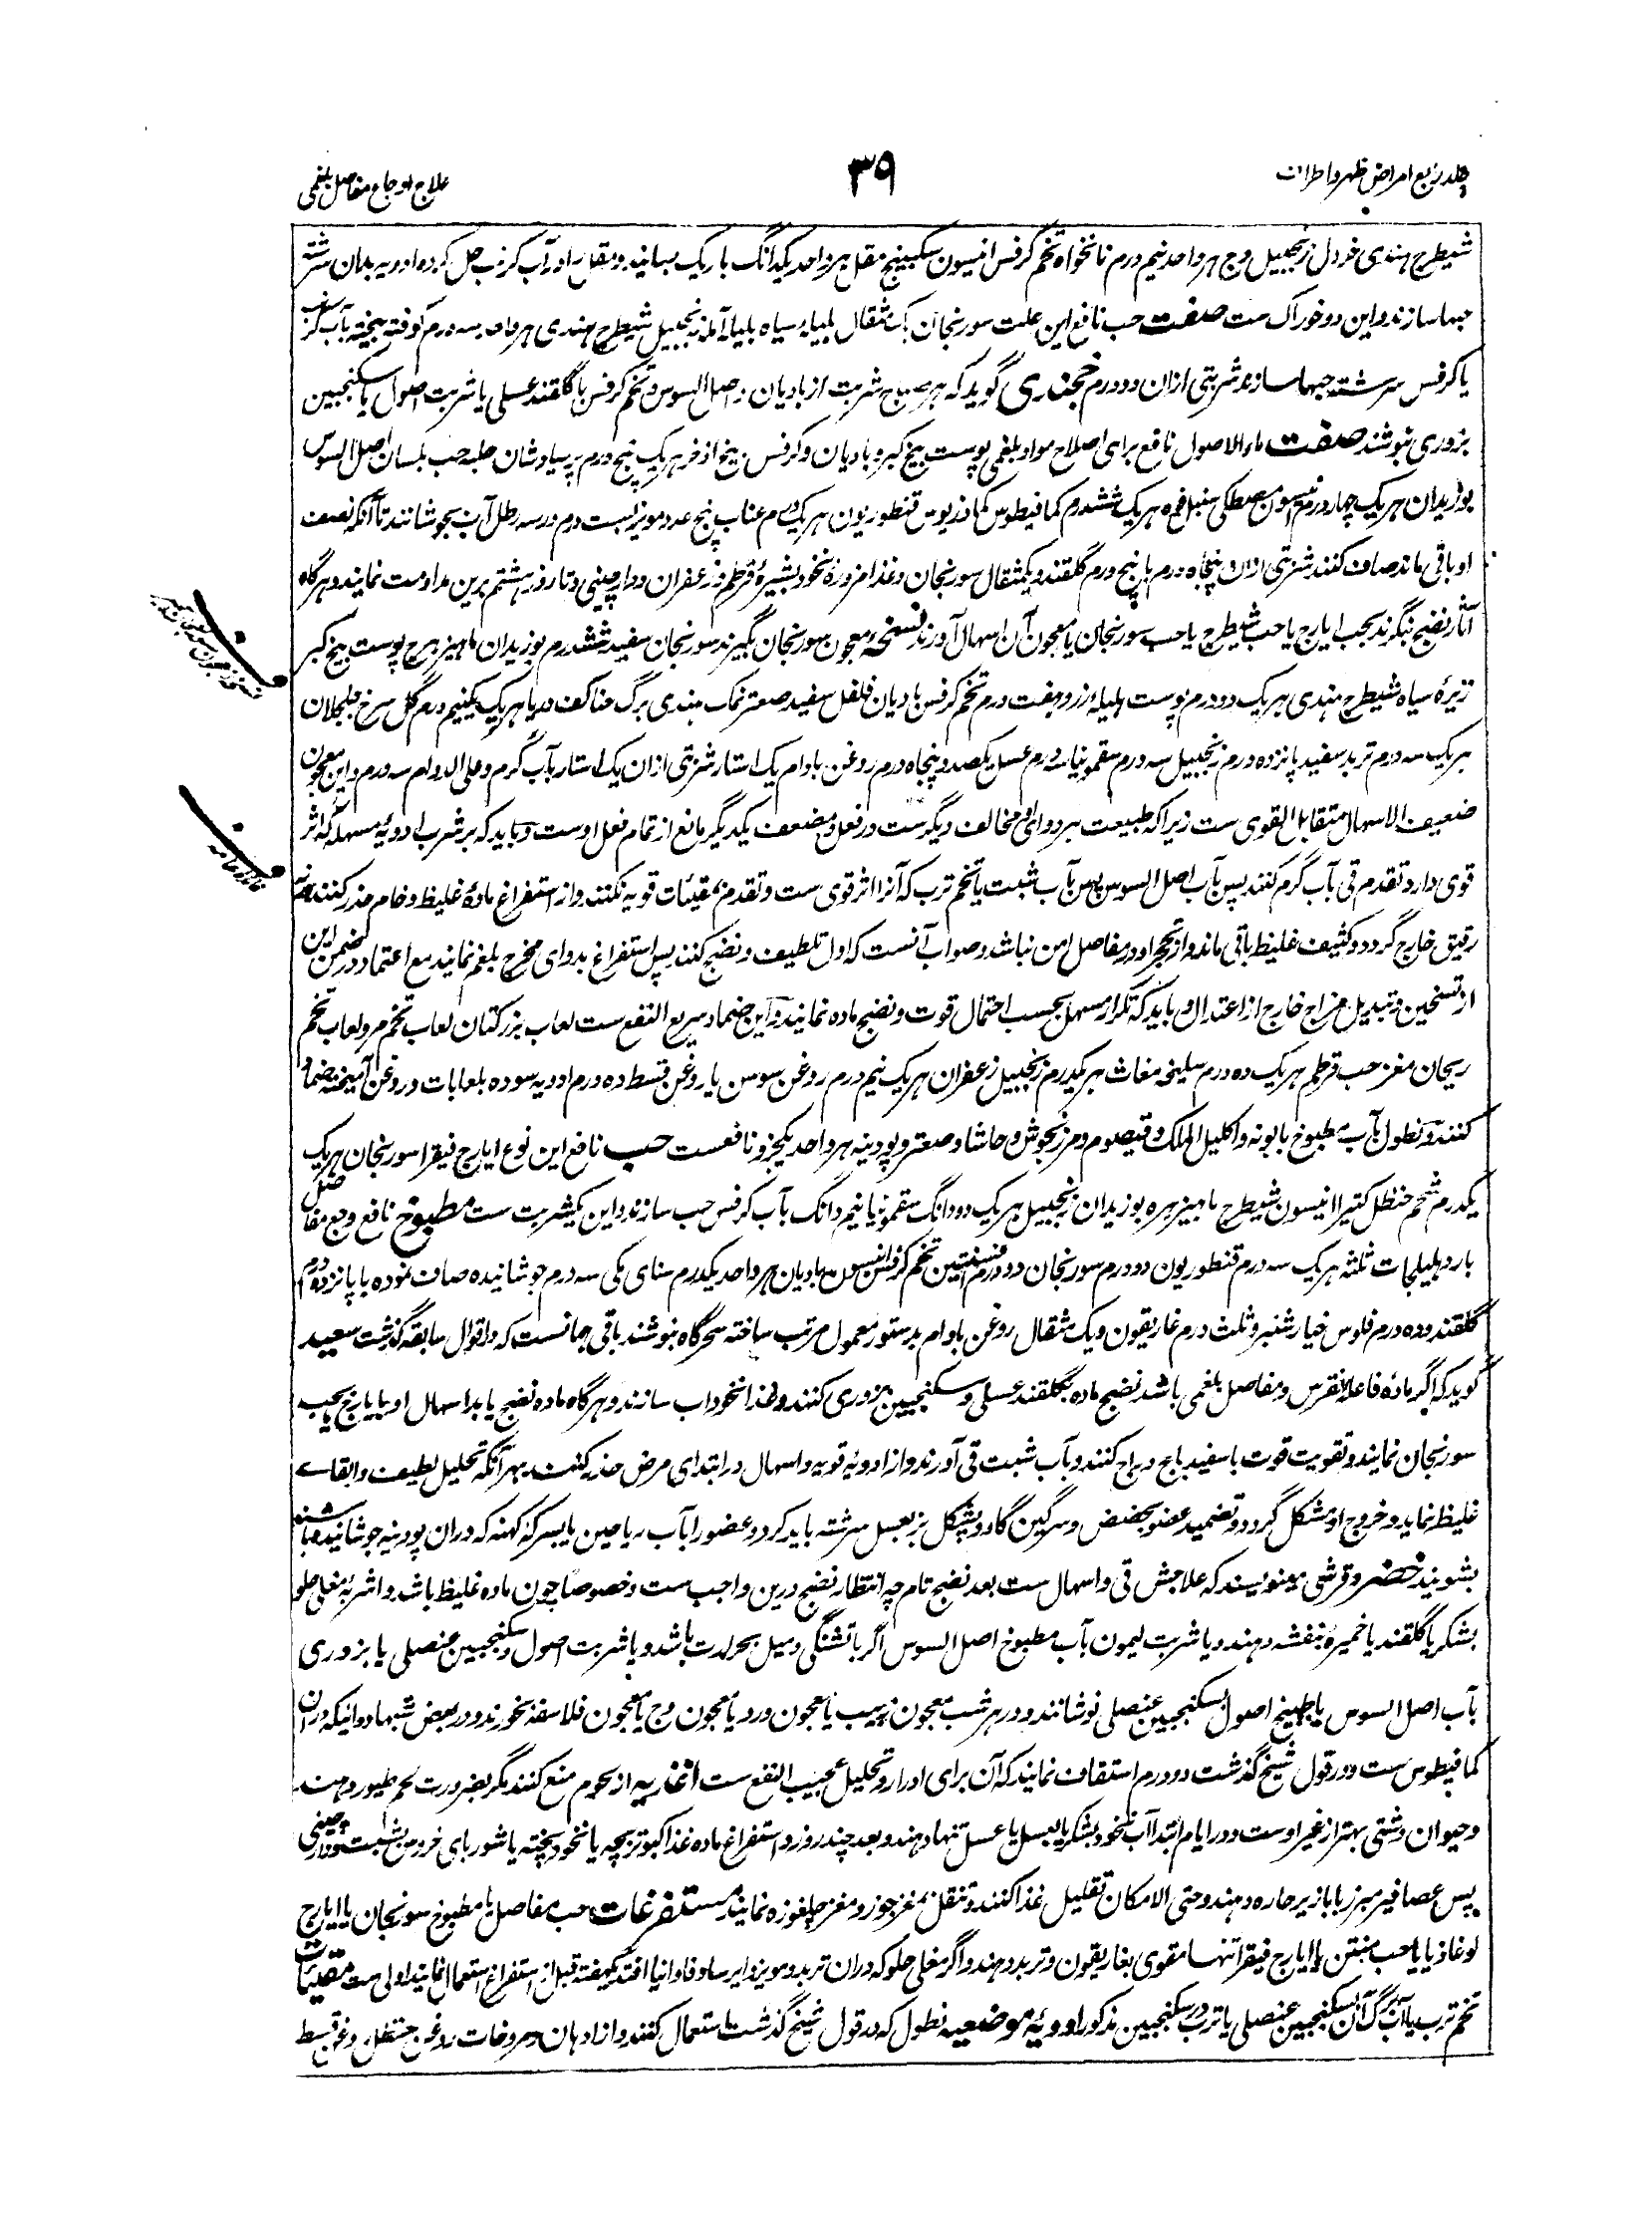 جلد رابع امراض ظهر و اطراف
۳۹
علاج اوجاع مفاصل بلغمی
شیطرج هندی خردل زنجبیل وج هر واحد نیم درم نانخواه تخم کرفس انیسون سکبینج مقل هر واحد یکدانگ باریک بسایند و مقل را در آب کرنب حل کرده ادویه بدان سرشته
حبها سازند و این دو خوراک ست صفت حب نافع این علت سورنجان یک مثقال هلیله سیاه بلیله آمله زنجبیل شیطرج هندی هر واحد سه درم کوفته بیخته بآب
یا کرفس سرشته حبها سازند شربتی ازان دو درم خجندی گوید که هر صباح شربت از بادیان و اصل السوس و تخم کرفس با گلقند عسلی یا شربت اصول یا سکنجبین
بزوری بنوشند صفت ماء الاصول نافع برای اصلاح مواد بلغمی پوست بیخ کبر و بادیان و کرفس بیخ اذخر هریک پنج درم پرسیاوشان حلبه حب بلسان اصل السوس
بوزیدان هریک چهار درم انیسون مصطکی سنبل فوه هریک ششدرم کمافیطوس کمادریوس قنطوریون هریک درم عناب پنج عدد مویز بست درم در سه رطل آب بجوشانند تا آنکه نصف
او باقی ماند صاف کنند شربتی ازان پنجاه درم با پنج درم گلقند و یکمثقال سورنجان و غذا مزوره نخود بشیره قرطم و زعفران و دارچینی و تا روز هشتم برین مداومت نمایند و هرگاه
آثار نضج بنگرند بحب ایارج یا حب شیطرج یا حب سورنجان یا معجون آن اسهال آورند نسخه معجون سورنجان بگیرند سورنجان سفید ششدرم بوزیدان ماهیزهرج پوست بیخ کبر
زیره سیاه شیطرج هندی هریک دو درم پوست هلیله زرد هفت درم تخم کرفس بادیان فلفل سفید صعتر نمک هندی برگ حنا کف دریا هریک یکنیم درم گل سرخ جلجلان
هریک سه درم تربد سفید پانزده درم زنجبیل سه درم سقمونیا درم عسل یکصد و پنجاه درم روغن بادام یک استار شربتی ازان یک استار بآب گرم و علی الدوام سه درم و این معجون
ضعیف الاسهال متقابل القوی ست زیرا که طبیعت هر دوای مخالف دیگر ست در فعل و مضعف یکدیگر مانع از تمام فعل اوست و باید که بر شرب ادویه مسهله که اثر
قوی دارد تقدم قی بآب گرم کنند پس بآب اصل السوس پس بآب شبت یا تخم ترب که آنرا اثر قوی ست و تقدم بمقیئات قویه نکنند و از استفراغ ماده غلیظ و خام حذر کنند
رقیق خارج گردد و کثیف غلیظ باقی ماند و از تحجر او در مفاصل امن نباشد و صواب آنست که اول تلطیف و نضج کنند پس استفراغ بدوای مخرج بلغم نمایند مع اعتماد در ضمن این
از تسخین و تبدیل مزاج خارج از اعتدال و باید که تکرار مسهل بحسب احتمال قوت و نضج ماده نمایند و این ضماد سریع النفع ست لعاب بزر کتان لعاب تخم مرو لعاب تخم
ریحان مغز حب قرطم هریک ده درم سلیخه مغاث هر یکدرم زنجبیل زعفران هریک نیم درم روغن سوسن یا روغن قسط ده درم ادویه سوده بلعابات و روغن آمیخته ضماد
کنند و نطول بآب مطبوخ بابونه و اکلیل الملک و قیصوم و مرزنجوش و حاشا و صعتر و پودینه هر واحد یکجزو نافعست حب نافع این نوع ایارج فیقرا سورنجان هریک
یکدرم شحم حنظل کتیرا انیسون شیطرج ماهیزهره بوزیدان زنجبیل هریک دو دانگ سقمونیا نیم دانگ بآب کرفس حب سازند و این یکشربت ست مطبوخ نافع وجع مفاصل
بارد هلیلجات ثلثه هریک سه درم قنطوریون دو درم سورنجان دو درم افسنتین تخم کرفس انیسون بادیان هر واحد یکدرم سنای مکی سه درم جوشانیده صاف نموده با پانزده درم
گلقند و ده درم فلوس خیار شنبر و ثلث درم غاریقون و یک مثقال روغن بادام بدستور معمول مرتب ساخته سحرگاه بنوشند باقی همانست که در اقوال سابقه گذشت سعید
گوید که اگر ماده فاعله نقرس و مفاصل بلغمی باشد نضج ماده بگلقند عسلی و سکنجبین بزوری کنند و غذا نخوداب سازند و هرگاه ماده نضج یابد اسهال او بایارج یا بحب
سورنجان نمایند و تقویت قوت باسفیدباج دراج کنند و بآب شبت قی آورند و از ادویه قویه و اسهال در ابتدای مرض حذر کنند بهر آنکه تحلیل لطیف و ابقای
غلیظ نماید و خروج او مشکل گردد و تضمید عضو بحضض و سرگین گاو و پشکل بز بعسل سرشته باید کرد و عضو را بآب ریاحین یا بسرکه کهنه که دران پودینه جوشانیده باشند
بشویند خضر و قرشی مینویسند که علاجش قی و اسهال ست بعد نضج تام چه انتظار نضج درین واجب ست و خصوصا چون ماده غلیظ باشد و اشربه مغلی حلو
بشکر یا گلقند یا خمیره بنفشه دهند و یا شربت لیمون بآب مطبوخ اصل السوس اگر با تشنگی و میل بحرارت باشد و یا شربت اصول و سکنجبین عنصلی یا بزوری
بآب اصل السوس یا بطبیخ اصول سکنجبین عنصلی نوشانند و در هر شب معجون زبیب یا معجون ورد یا معجون وج یا معجون فلاسفه بخورند و در بعض شبها دوائیکه دران
کمافیطوس ست و در قول شیخ گذشت دو درم استفاف نمایند که آن برای ادرار و تحلیل عجیب النفع ست اغذیه از لحوم منع کنند مگر بضرورت لحم طیور دهند
و حیوان دشتی بهتر از غیر اوست و در ایام ابتدا آب نخود بشکر یا بعسل یا عسل تنها دهند و بعد چند روز و استفراغ ماده غذا کبوتر بچه یا نخود پخته یا شوربای خروس بشبت و دارچینی
پس عصافیر مبزر بابازیر حاره دهند و حتی الامکان تقلیل غذا کنند و تنقل بمغز جوز و مغز چلغوزه نمایند مستفرغات حب مفاصل یا مطبوخ سورنجان یا ایارج
لوغاذیا یا حب منتن یا ایارج فیقرا تنها مقوی بغاریقون و تربد دهند و اگر مغلی حلو که دران تربد و مویز و ایرسا و فاوانیا افتد یکهفته قبل از استفراغ استعمال نمایند اولی ست مقیئات
تخم ترب یا آب برگ آن بسکنجبین عنصلی یا ترب در سکنجبین مذکور ادویه موضعیه نطول که در قول شیخ گذشت استعمال کنند و از ادهان و مروخات روغن حنظل و روغن قسط